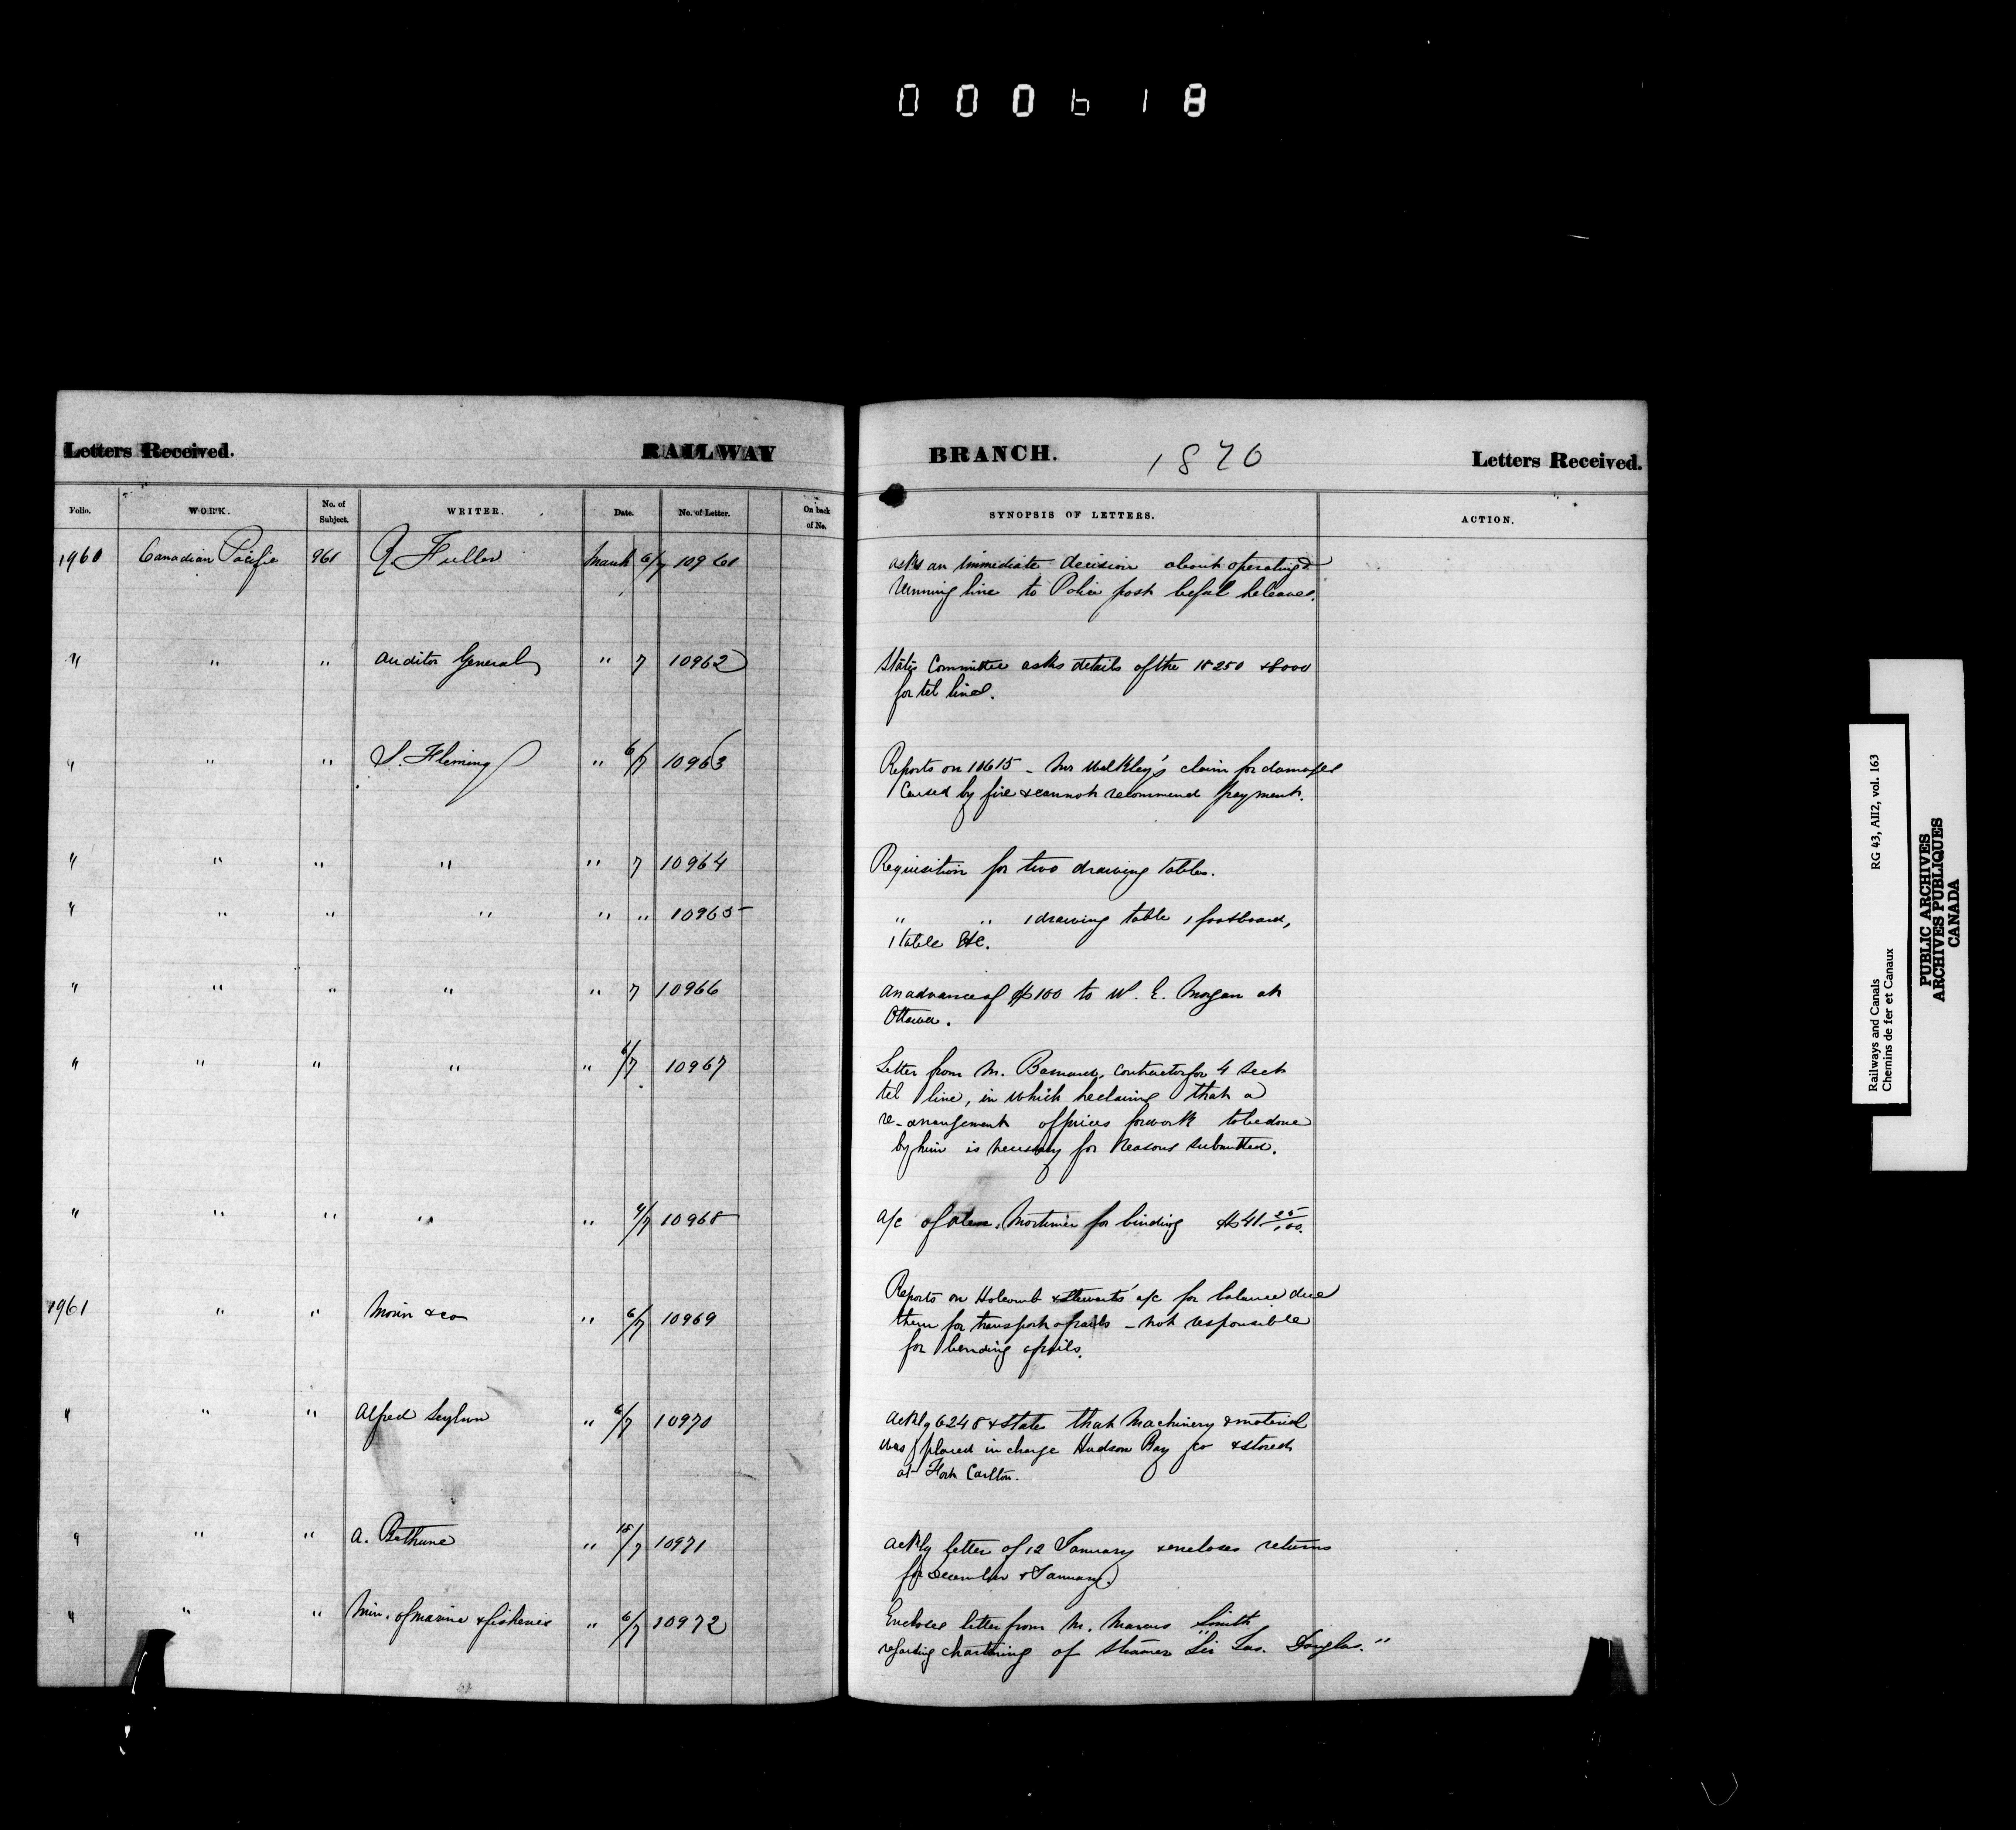 000618
Letters Received. RAILWAY BRANCH. 1876 Letters Received.
Folio. WORK. No. of Subject. WRITER. Date. No. of Letter. On back of No. SYNOPSIS OF LETTERS. ACTION.
1960 Canadian Pacific 961 R. Fuller March 6/7 10961 asks an immediate decision about operating &
running line to Police post before he leaves.
" " " Auditor General " 7 10962 States Committee asks details of the 18250 & 8000
for tel lines.
" " " S. Fleming " 6/7 10963 Reports on 10615 - Mr Walkley's claim for damages
caused by fire & cannot recommend payment.
" " " " " 7 10964 Requisition for two drawing tables.
" " " " " " 10965 " " 1 drawing table 1 footboard,
1 table &c.
" " " " " 7 10966 an advance of $100 to W. E. Morgan at
Ottawa.
" " " " " 6/7 10967 Letter from Mr. Barnard, contractor for 4 sect
tel line, in which he claims that a
re-arrangement of prices for work to be done
by him is necessary for reasons submitted.
" " " " " 4/7 10968 a/c of Alex. Mortimer for binding $41 25/100.
1961 " " Morin & co " 6/7 10969 Reports on Holcomb & Stewart's a/c for balance due
them for transport of rails - not responsible
for bending of rails.
" " " Alfred Selwyn " 6/7 10970 Ackly 6248 & states that Machinery & material
was placed in charge Hudson Bay Co & stored
at Fort Carlton.
" " " A. Bethune " 18/7 10971 Ackly letter of 12 January & encloses returns
for December & January.
" " " Min. of marine & fisheries " 6/7 10972 Encloses letter from Mr. Marcus Smith
regarding chartering of steamer "Sir Jas. Douglas."
Railways and Canals RG 43, AII2, vol. 163
Chemins de fer et Canaux
PUBLIC ARCHIVES
ARCHIVES PUBLIQUES
CANADA